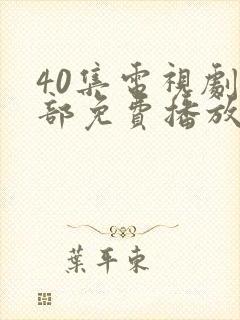 40集電視劇
部免費播放
葉平東